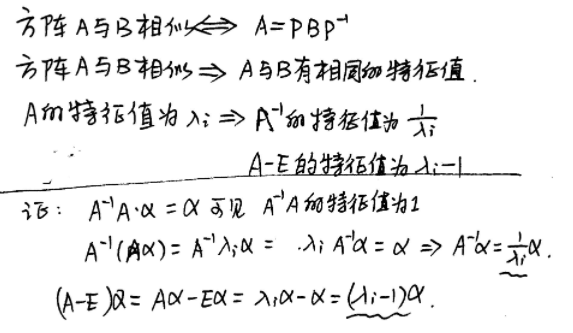 方阵A与B相似⟺ A=PBP⁻¹
方阵A与B相似⇒ A与B有相同的特征值.
A的特征值为λᵢ⇒ A⁻¹的特征值为 1/λᵢ
A-E的特征值为λᵢ-1
证: A⁻¹A·α=α 可见 A⁻¹A的特征值为1
A⁻¹(Aα)=A⁻¹λᵢα= λᵢA⁻¹α=α ⇒ A⁻¹α=1/λᵢ α.
(A-E)α=Aα-Eα=λᵢα-α=(λᵢ-1)α.